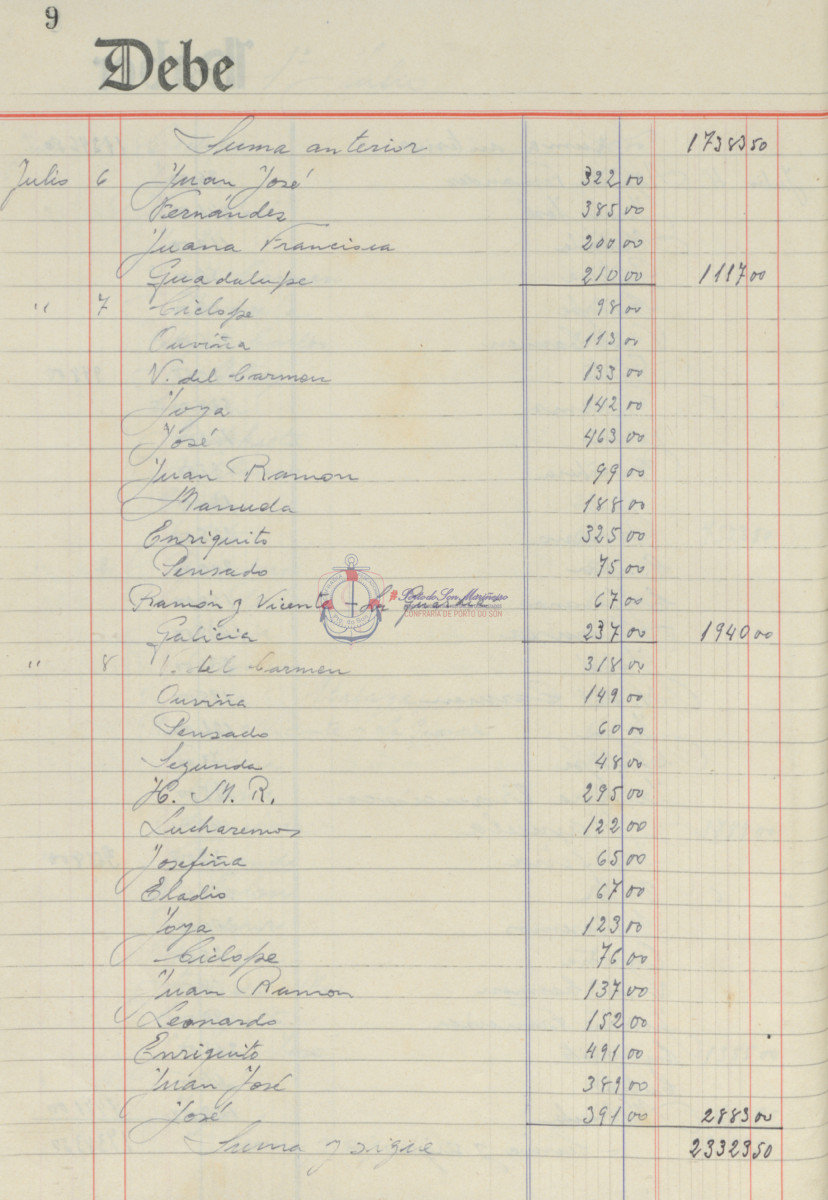 9
Debe
Suma anterior 17383 50
Julio 6 Juan José 322 00
Fernández 385 00
Juana Francisca 200 00
Guadalupe 210 00 1117 00
" 7 Cíclope 98 00
Ouviña 113 00
V. del Carmen 133 00
Joya 142 00
José 463 00
Juan Ramon 99 00
Manuela 188 00
Enriquito 325 00
Pensado 75 00
Ramón y Vicente 67 00
#Porto do Son Mariñeiro
CONFRARÍA DE PORTO DO SON
Galicia 237 00 1940 00
" 8 V. del Carmen 318 00
Ouviña 149 00
Pensado 60 00
Segunda 48 00
H. M. R. 295 00
Lucharemos 122 00
Josefiña 65 00
Eladio 67 00
Joya 123 00
Cíclope 76 00
Juan Ramon 137 00
Leonardo 152 00
Enriquito 491 00
Juan José 389 00
José 391 00 2883 00
Suma y sigue 23323 50